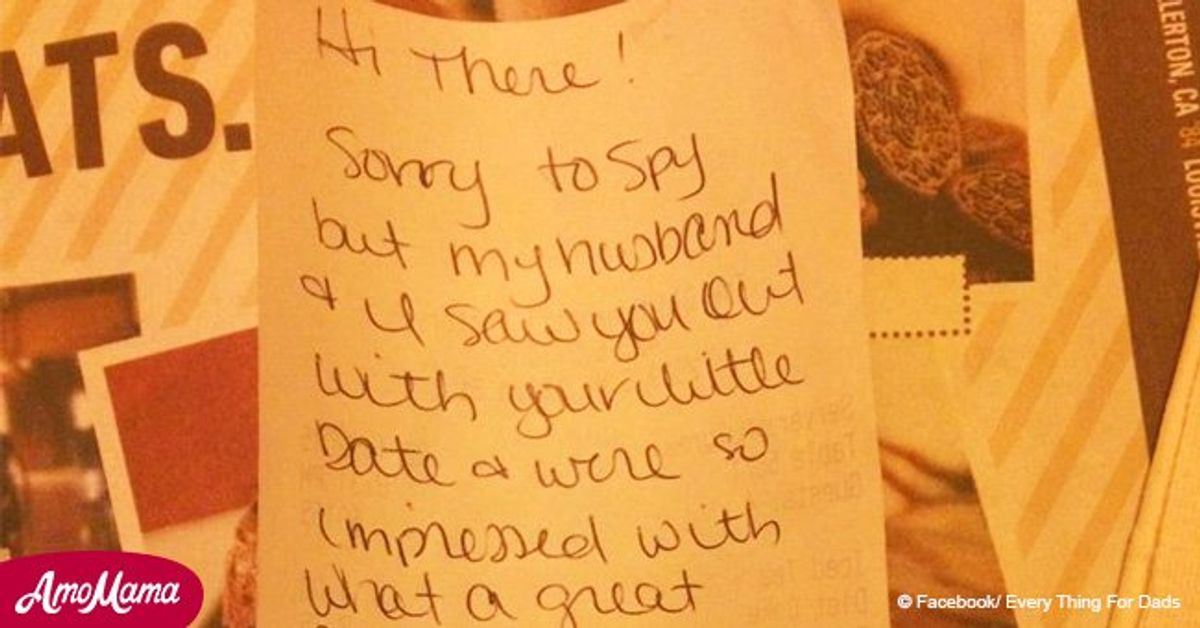 ATS.
Hi There!
Sorry to spy
but my husband
& I saw you out
with your little
Date & were so
impressed with
what a great
LLERTON, CA
AmoMama
© Facebook/ Every Thing For Dads